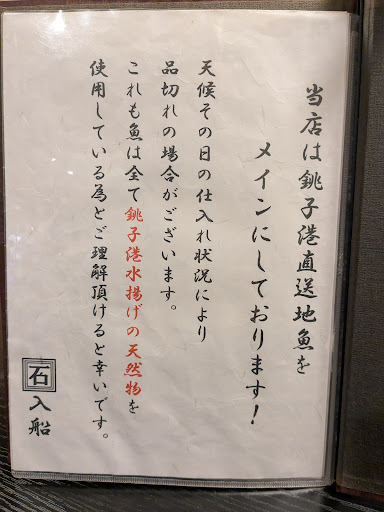 当店は銚子港直送地魚を
メインにしております!
天候その日の仕入れ状況により
品切れの場合がございます。
これも魚は全て銚子港水揚げの天然物を
使用している為とご理解頂けると幸いです。
石 入船